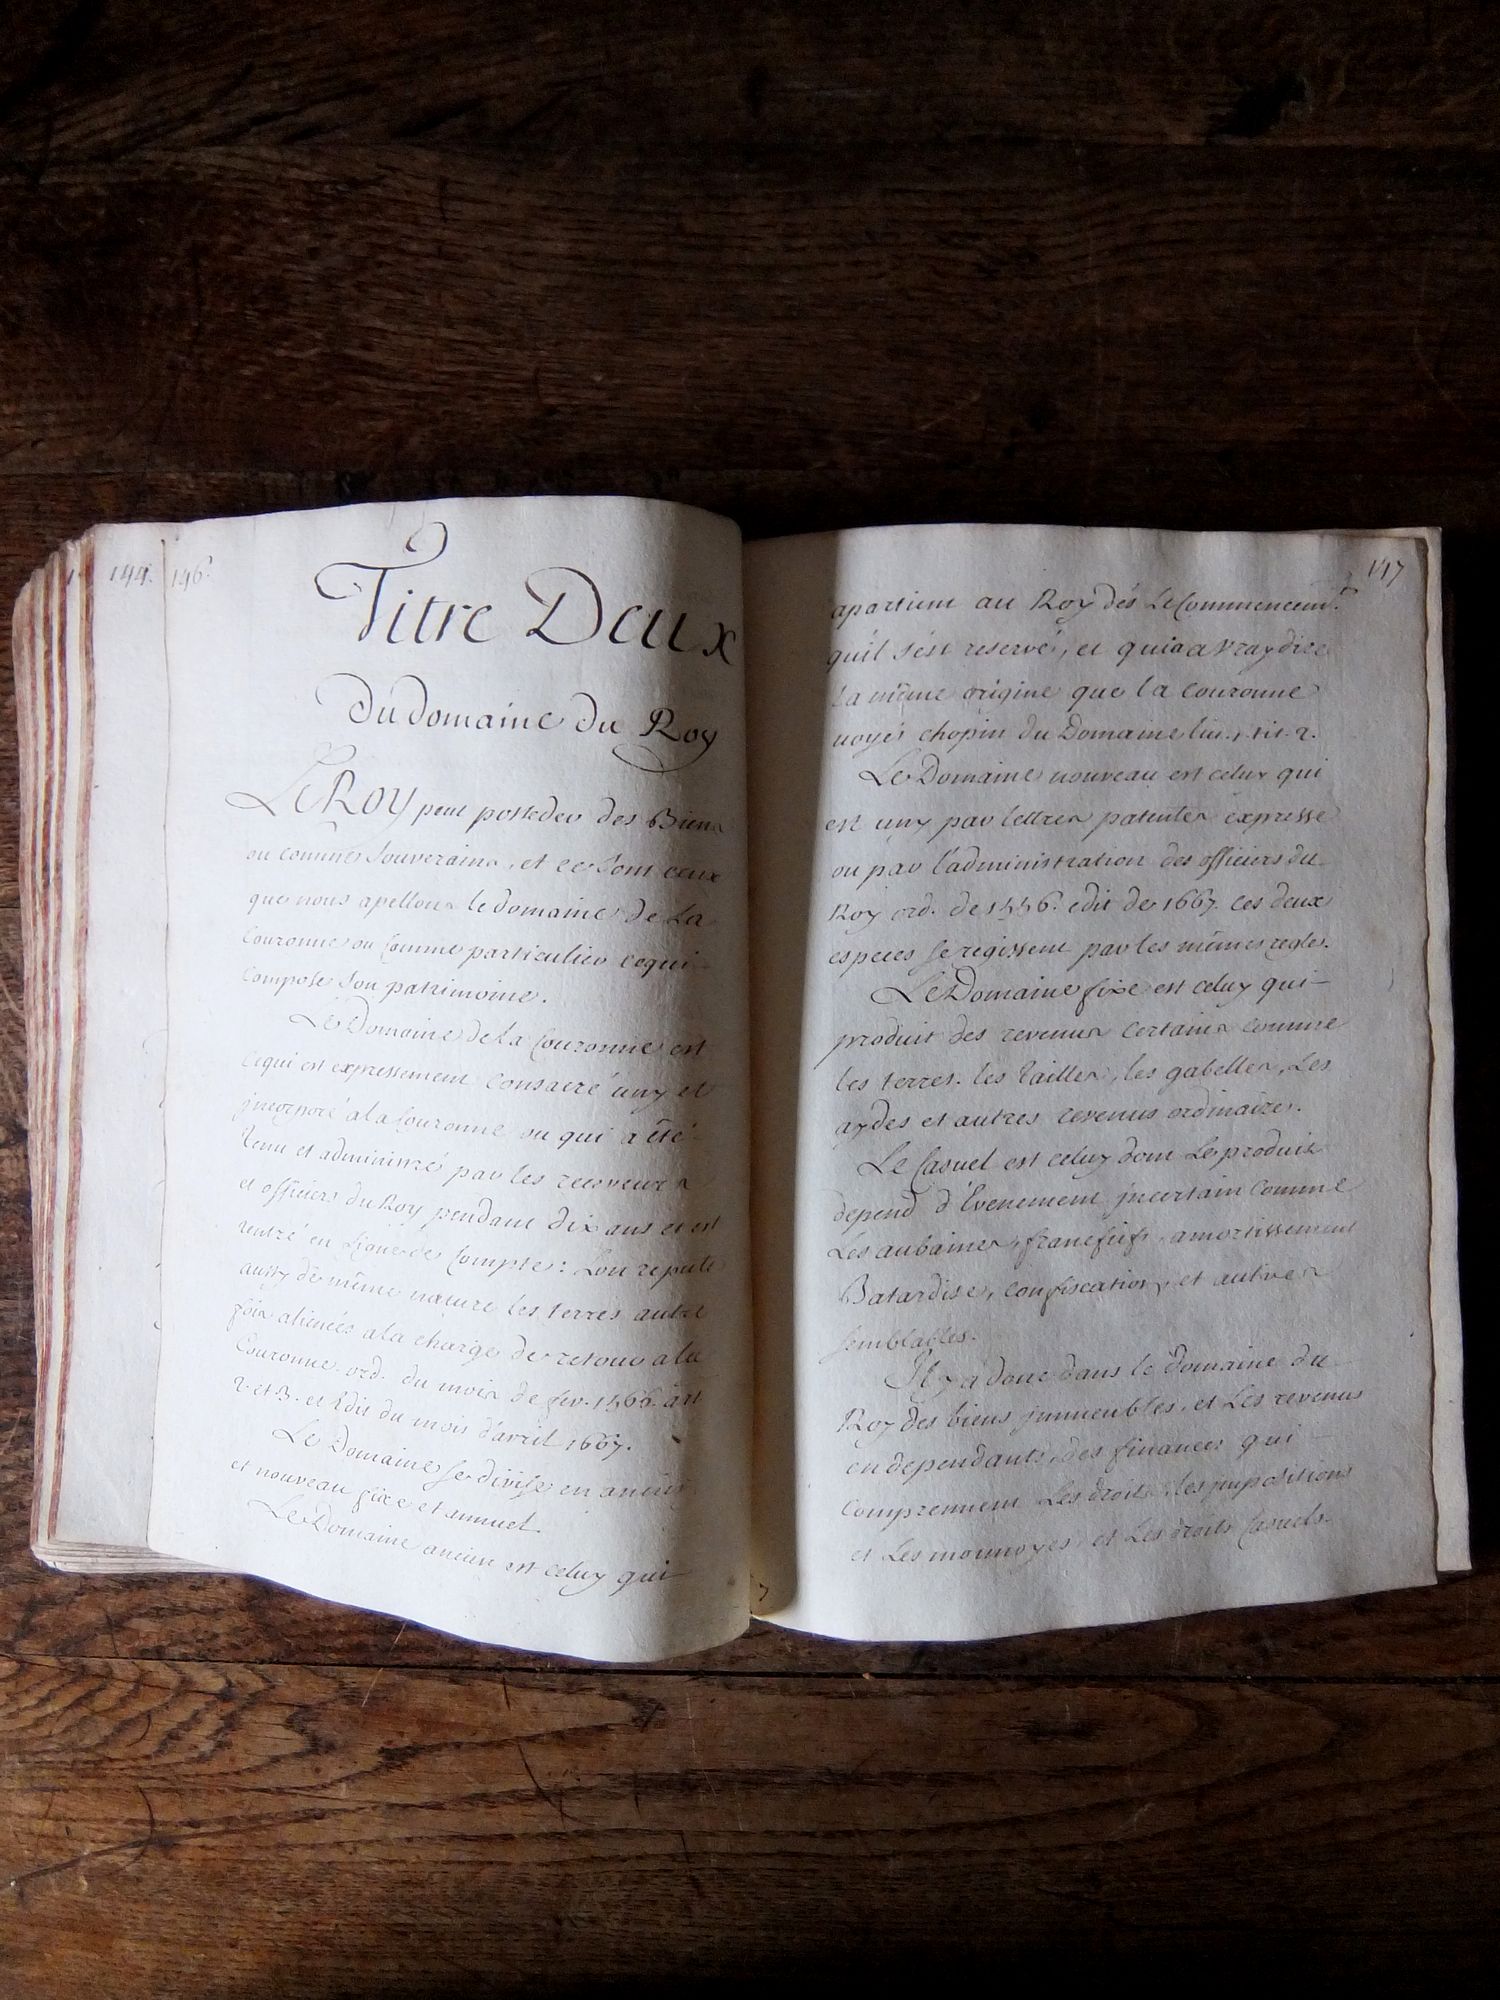 144.
146.
Titre Deux
du domaine du Roy
Le Roy peut posseder des Biens
ou comme Souverains, et ce sont ceux
que nous apellons le domaine de La
Couronne ou Comme particulier cequi
Compose son patrimoine.
Le Domaine de La Couronne est
cequi est expressement consacré uny et
jncorporé a la Couronne ou qui a été
tenu et administré par les receveurs
et officiers du Roy pendant dix ans et est
rentré en Ligne de Compte: Lon repute
aussy de même nature les terres autre
fois alienées a la charge de retour a la
Couronne ord. du mois de fev. 1566. art
2. et 3. et Edit du mois d'avril 1667.
Le Domaine se divise en ancien
et nouveau fixe et annuel.
Le Domaine ancien est celuy qui
147
apartient au Roy dés Le Commencemt.
qu'il s'est reservé, et qui a a Vray dire
la même origine que la couronne
voyés chopin du Domaine liv. 1. tit. 2.
Le Domaine nouveau est celuy qui
est uny par lettres patentes expresse
ou par l'administration des officiers du
Roy ord. de 1556. edit de 1667. ces deux
especes se regissent par les mêmes regles.
Le Domaine fixe est celuy qui
produit des revenus certains comme
les terres. les tailles, les gabelles, Les
aydes et autres revenus ordinaires.
Le Casuel est celuy dont Le produit
depend d'Evenement jncertain Comme
Les aubaines, francfiefs, amortissement
Batardise, confiscation, et autres
semblables.
Jl y a donc dans le domaine du
Roy des biens jmmeubles, et Les revenus
en dependants, des finances qui
Comprennent Les droits, les jmpositions
et Les monnoyes, et Les droits Casuels.